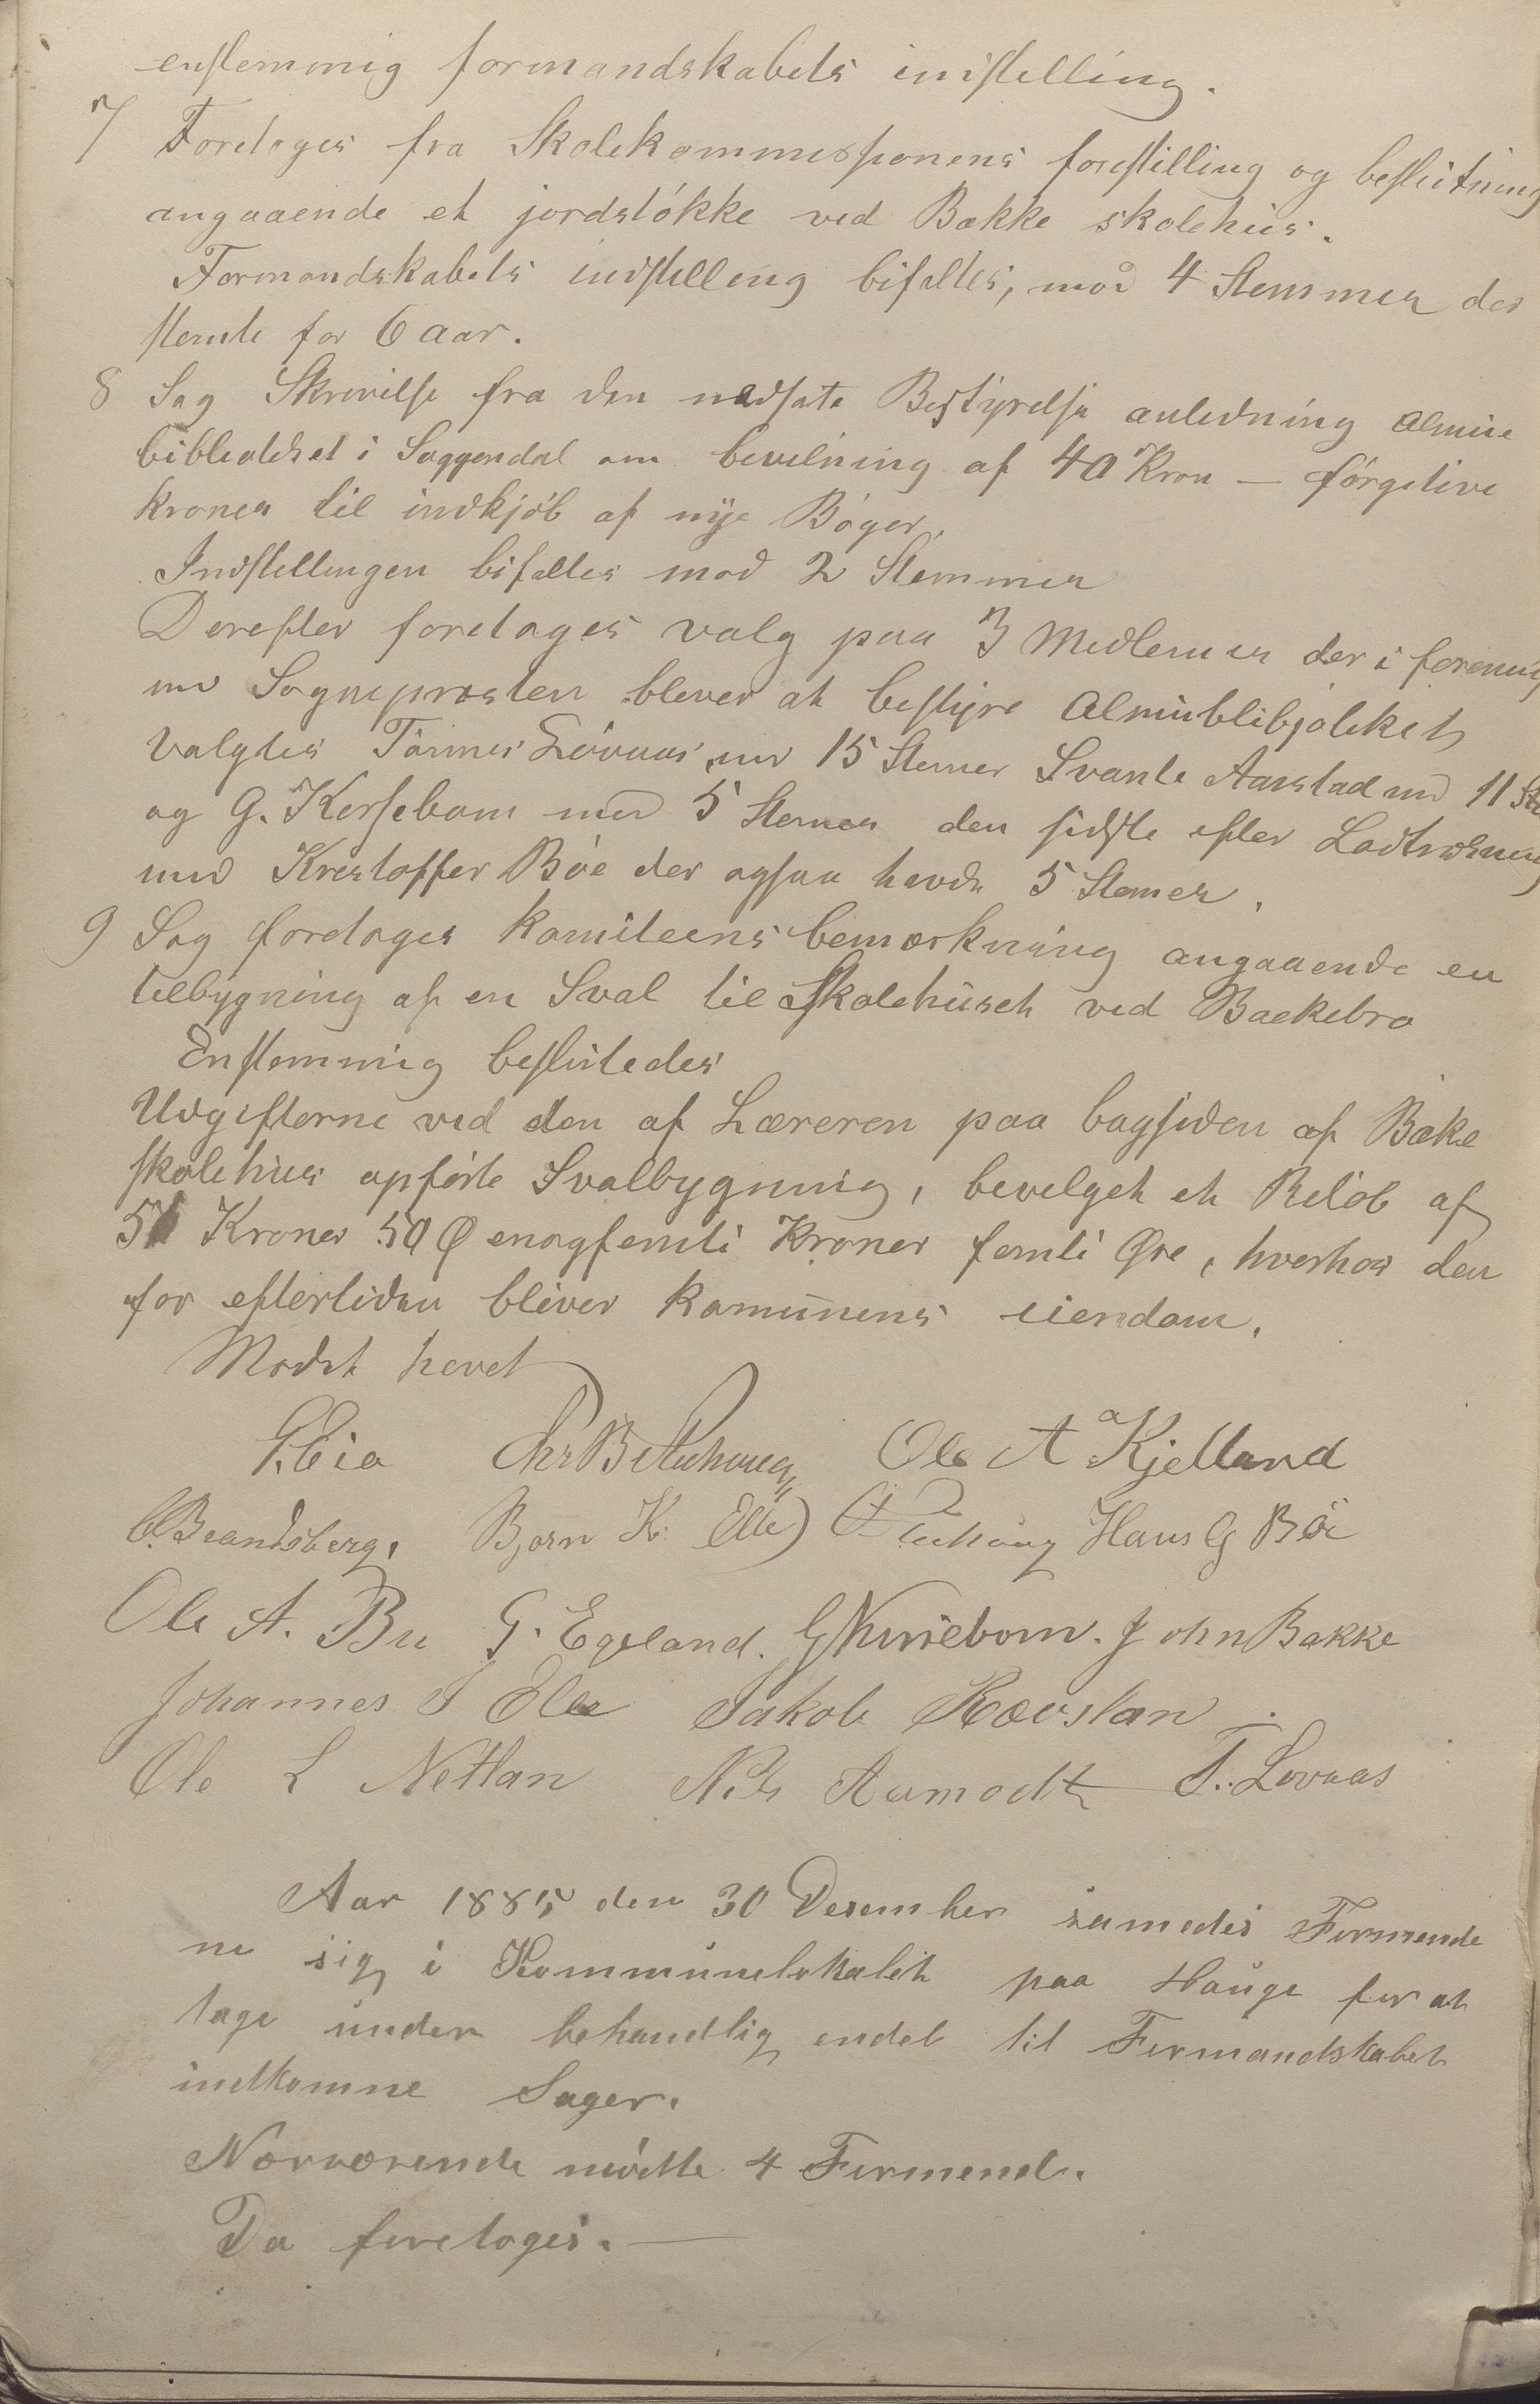 enstemmig formandskabets indstelling.
7 Foretoges fra Skolekommissionens forstilling og beslutning
angaaende et jordstókke ved Bakke skolehus.
Formandskabets indstelling bifaltes, mod 4 Stemmer der
stemte for 6 aar.
8 Sag Skrivilse fra den nedsate Bestyrelse anledning almue
bibleoteket i Soggendal om bevilning af 40 Kron — førgetive
kroner til indkjób af nye Bóger.
Indstellingen bifaltes mod 2 Stemmer
Derefter foretoges valg paa 3 Medlemer der i forening
md Sogneprosten blever at bestyre Almúeblibjoteket
Valgtes Tørmes Lóvaas md 15 Stemer Svante Aarstad md 11 Ste
og G. Kersebom med 5 Stemer den sidste efter Lodtrækning
md Krestoffer Bóe der ogsaa havde 5 Stemer.
9 Sag fordoges komiteens bemærkning angaaende en
tilbygning af en Sval til Skolehuset ved Baekebro
Enstemmig beslutedes
Udgifterne ved den af Læreren paa bagsiden af Bake
skolehus opførte Svalbygning, bevelget et Belób af
51 Kroner 50 Ø enogfemti Kroner femti Øre, hverhos den
for eftertiden bliver komunens eiendom.
Modet hevet
G. Eia Chr B Auhoug Ole A Kjelland
C. Brandsberg. Bjorn K. Elle Hans G Bøe
Ole A. Bu G. Egeland. G Kursebom. John Bakke
Johannes J Elle Jakob Rævslan
Ole L Netlan Nils Aamodt T. Lovaas
Aar 1885 den 30 Desember samedes Formende
ne sig i Kommunelokalet paa Hauge for at
tage under behandlig endel til Formandskabet
indkomne Sager.
Nærværende møtte 4 Formend.
Da foretoges. —